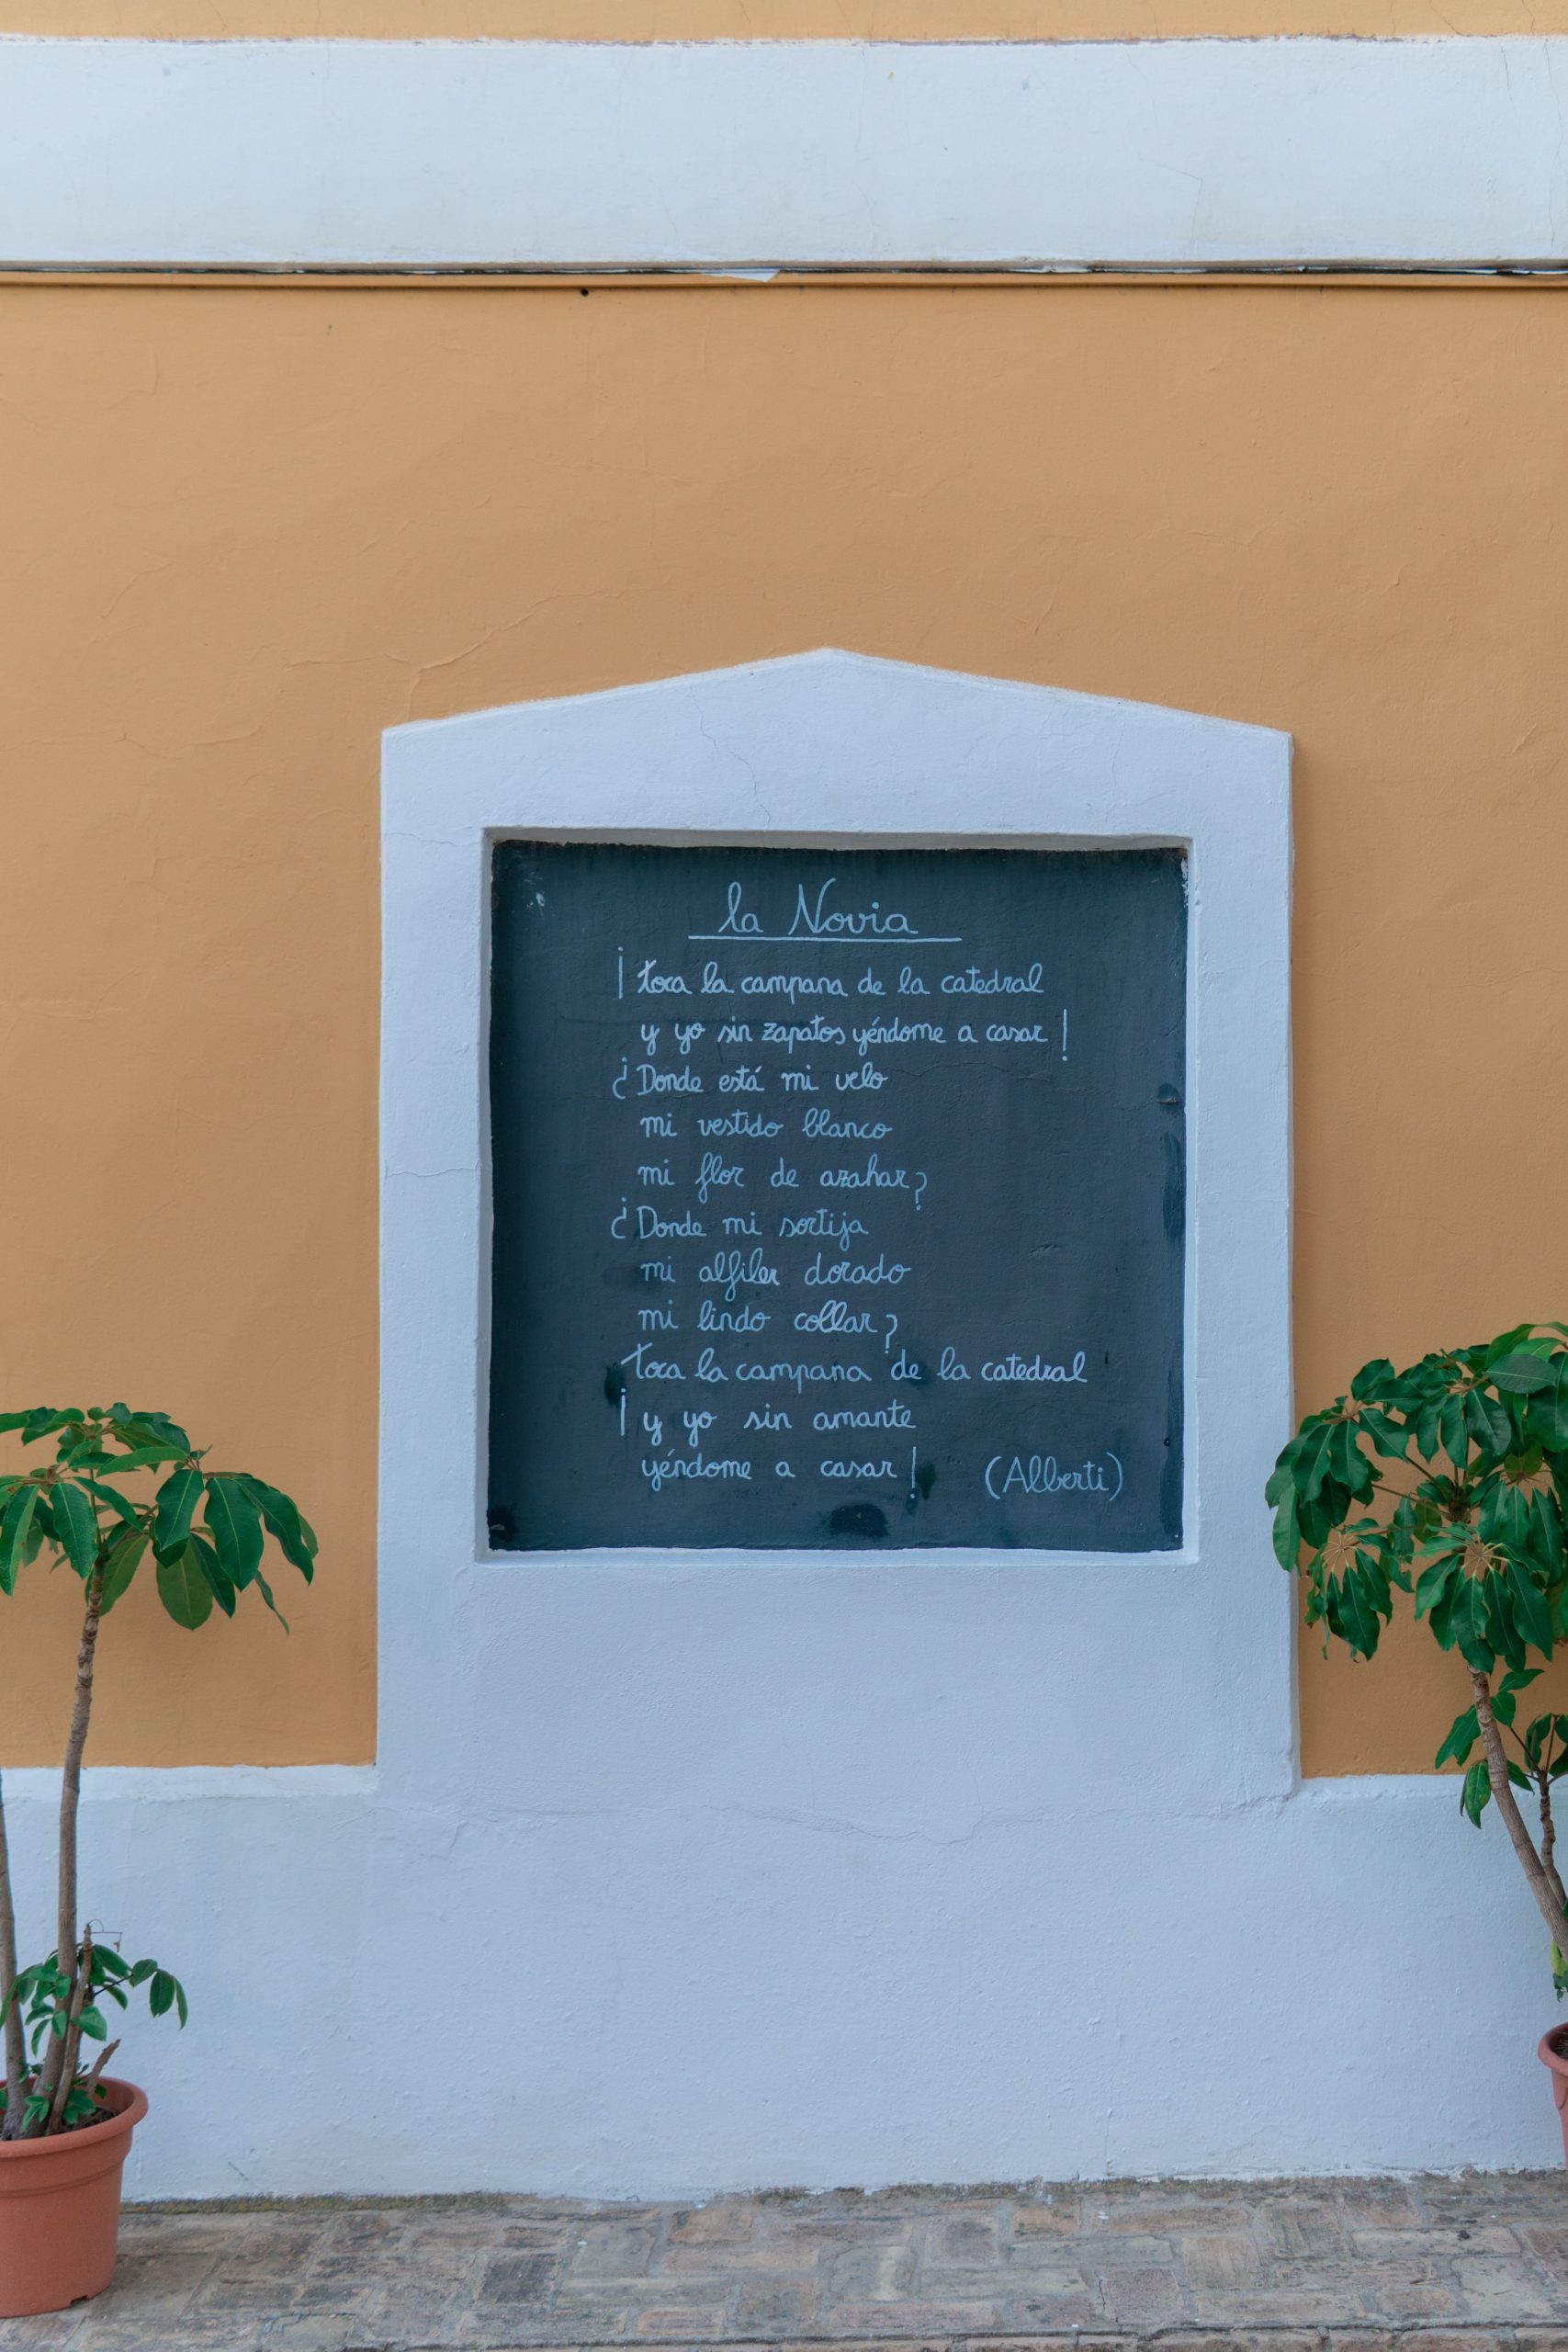 la Novia
¡toca la campana de la catedral
y yo sin zapatos yéndome a casar!
¿Donde está mi velo
mi vestido blanco
mi flor de azahar?
¿Donde mi sortija
mi alfiler dorado
mi lindo collar?
Toca la campana de la catedral
¡y yo sin amante
yéndome a casar!
(Alberti)